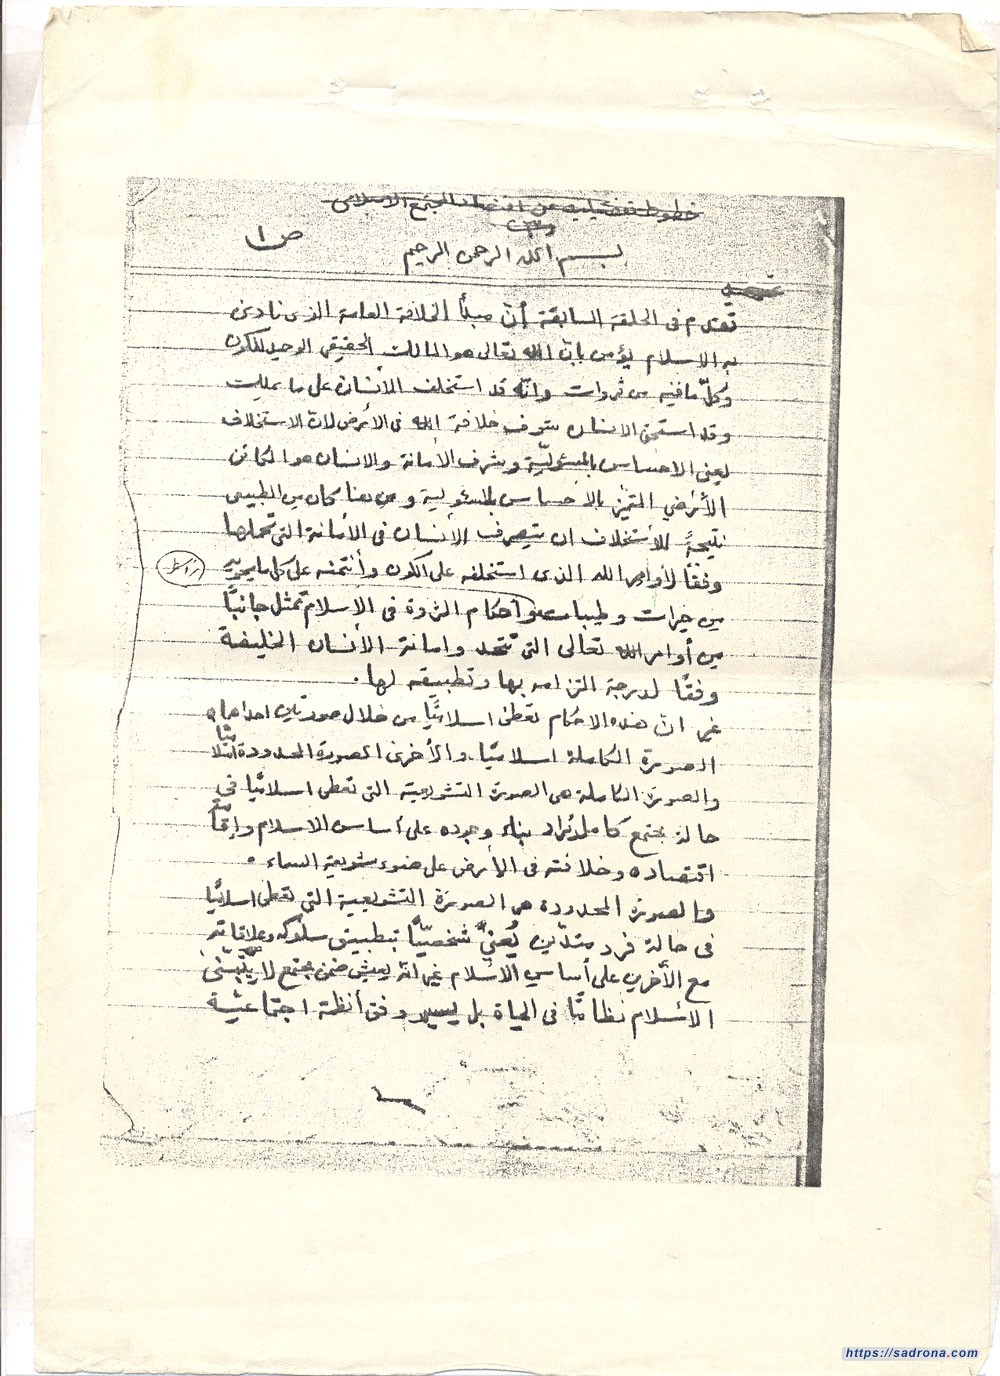 خطوط تفصيلية عن اقتصاد المجتمع الاسلامي
ص ١
بسم الله الرحمن الرحيم
تقدم في الحلقة السابقة أن مبدأ الخلافة العامة الذي نادى
به الاسلام يؤمن بان الله تعالى هو المالك الحقيقي الوحيد للكون
وكلّ ما فيه من ثروات وانّه قد استخلف الأنسان على ما يملك
وقد استحق الانسان شرف خلافة الله في الأرض لان الاستخلاف
يعني الاحساس بالمسئوليّة وشرف الأمانة والانسان هو الكائن
الأرضي المتميّز بالاحساس بالمسئولية ومن هنا كان من الطبيعي
نتيجةً للأستخلاف ان يتصرف الأنسان في الأمانة التي تحملها
وفقًا لأوامر الله الذي استخلفه على الكون وأئتمنه على كل ما يحويه
من خيرات وطيبات وأحكام الثروة في الاسلام تمثل جانبًا
من أوامر الله تعالى التي تتحدد امانة الأنسان الخليفة
وفقًا لدرجة التزامه بها وتطبيقه لها .
غير ان هذه الاحكام تعطى اسلاميًّا من خلال صورتين احداهما
الصورة الكاملة اسلاميًّا والأخرى الصورة المحدودة اسلاميًّا
والصورة الكاملة هي الصورة التشريعية التي تعطى اسلاميًّا في
حالة مجتمع كامل يُراد بناء وجوده على أساس الاسلام وإقامة
اقتصاده وخلافته في الأرض على ضوء شريعة السماء .
والصورة المحدودة هي الصورة التشريعية التي تعطى اسلاميًّا
في حالة فرد متديّن يُعنىٰ شخصيًّا بتطبيق سلوكه وعلاقاته
مع الأخرين على أساس الاسلام غير انّه يعيش ضمن مجتمع لا يتبنّى
الاسلام نظامًا في الحياة بل يسير وفق أنظمة اجتماعية
https://sadrona.com